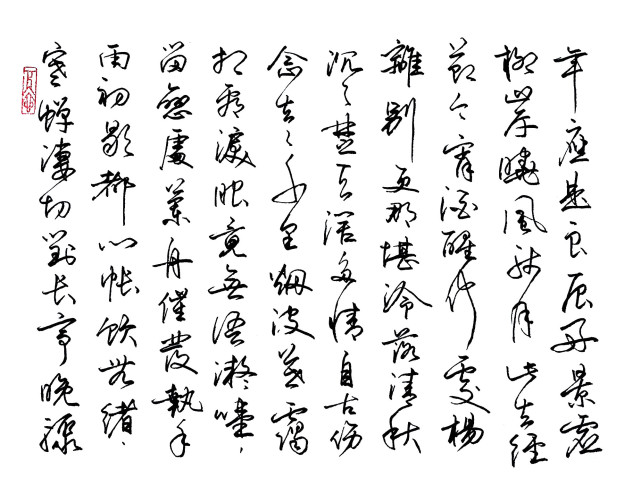 寒蟬淒切對長亭晚驟
雨初歇都門帳飲無緒
留戀處蘭舟催發執手
相看淚眼竟無語凝噎
念去々千里烟波暮靄
沉々楚天闊多情自古傷
離別更那堪冷落清秋
節今宵酒醒何處楊
柳岸曉風殘月此去經
年應是良辰好景虛